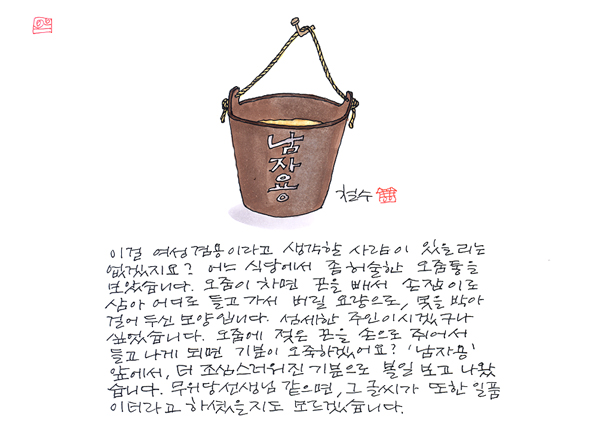 남자용
철수
이걸 여성겸용이라고 생각할 사람이 있을리는
없겠지요? 어느 식당에서 좀 허술한 오줌통을
보았습니다. 오줌이 차면 끈을 빼서 손잡이로
삼아 어디로 들고가서 버릴 요량으로, 못을 박아
걸어 두신 모양입니다. 섬세한 주인이시겠구나
싶었습니다. 오줌에 젖은 끈을 손으로 쥐어서
들고 나게 되면 기분이 오죽하겠어요? '남자용'
앞에서, 더 조심스러워진 기분으로 볼일 보고 나왔
습니다. 무위당선생님 같으면, 그 글씨가 또한 일품
이더라고 하셨을지도 모르겠습니다.